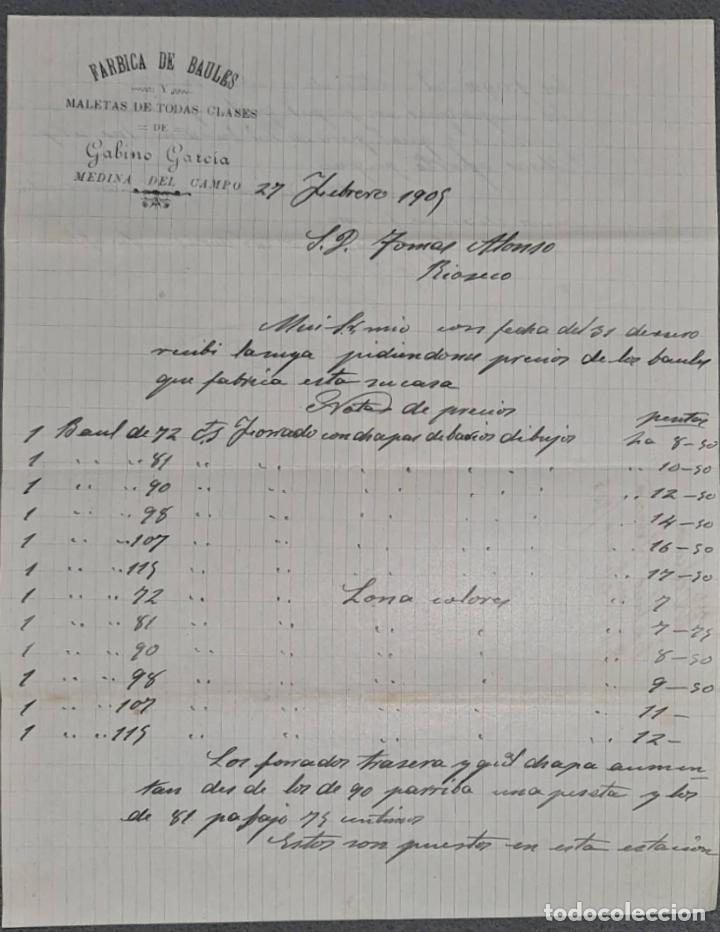 FARBICA DE BAULES
Y
MALETAS DE TODAS CLASES
= DE =
Gabino García
MEDINA DEL CAMPO
27 Febrero 1905
S. D. Tomas Alonso
Rioseco
Mui Sr mio con fecha del 31 de enero
recibi la suya pidiendome precios de los baules
que fabrica esta su casa
Nota de precios pesetas
1 Baul de 72 Forrado con chapas de barios dibujos La 8-50
1 " " 81 " " " " " " 10-50
1 " " 90 " " " " " " " 12-50
1 " " 98 " " " " " " " 14-50
1 " " 107 " " " " " " " 16-50
1 " " 115 " " " " " " " 17-50
1 " " 72 " " Lona colores " 7
1 " " 81 " " " " " 7-75
1 " " 90 " " " " " 8-50
1 " " 98 " " " " " 9-50
1 " " 107 " " " " " 11-
1 " " 115 " " " " " 12-
Los forrados trasera y chapa aumen-
tan des de los de 90 parriba una peseta y los
de 81 pabajo 75 centimos
Estos son puestos en esta estación
todocoleccion.net